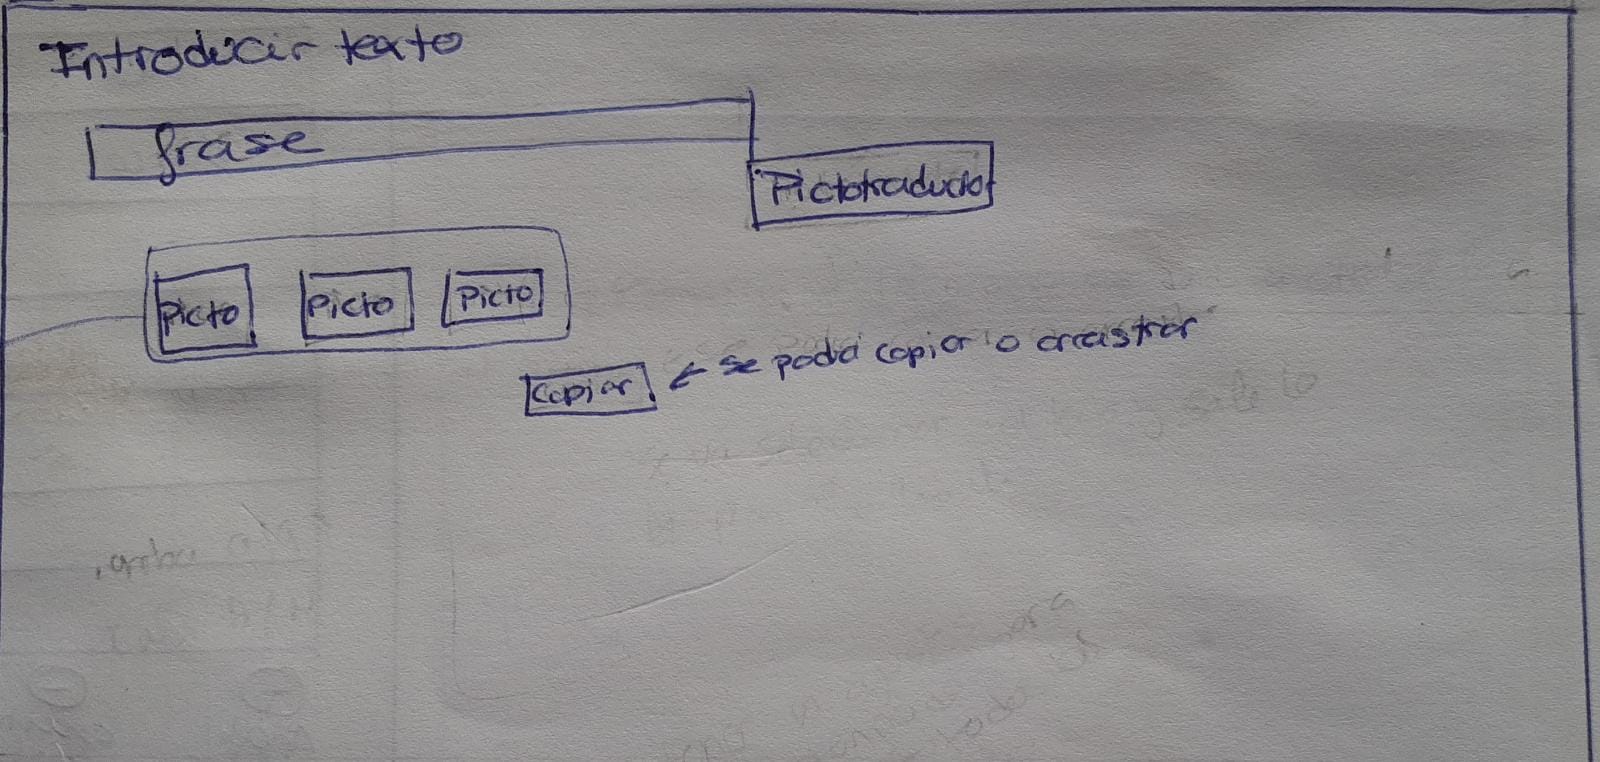 Introducir texto
frase
Pictotraductor
Picto Picto Picto
Copiar ← se podrá copiar o arrastrar